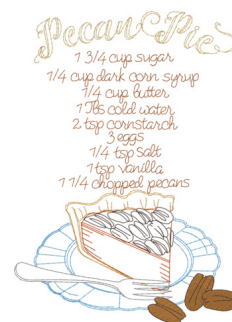 Pecan Pie
1 3/4 cup sugar
1/4 cup dark corn syrup
1/4 cup butter
1 Tbs cold water
2 tsp cornstarch
3 eggs
1/4 tsp salt
1 tsp vanilla
1 1/4 chopped pecans